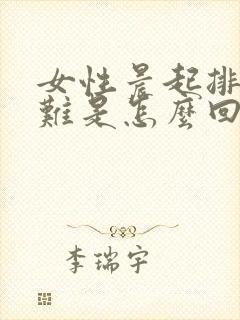 女性晨起排
難是怎麼回
李瑞宇